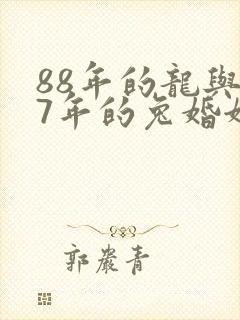 88年的龍與
7年的兔婚
郭嚴青